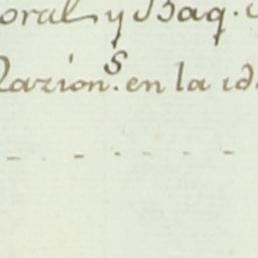 oral y Baq.
Razion.s en la id
- - - - - -